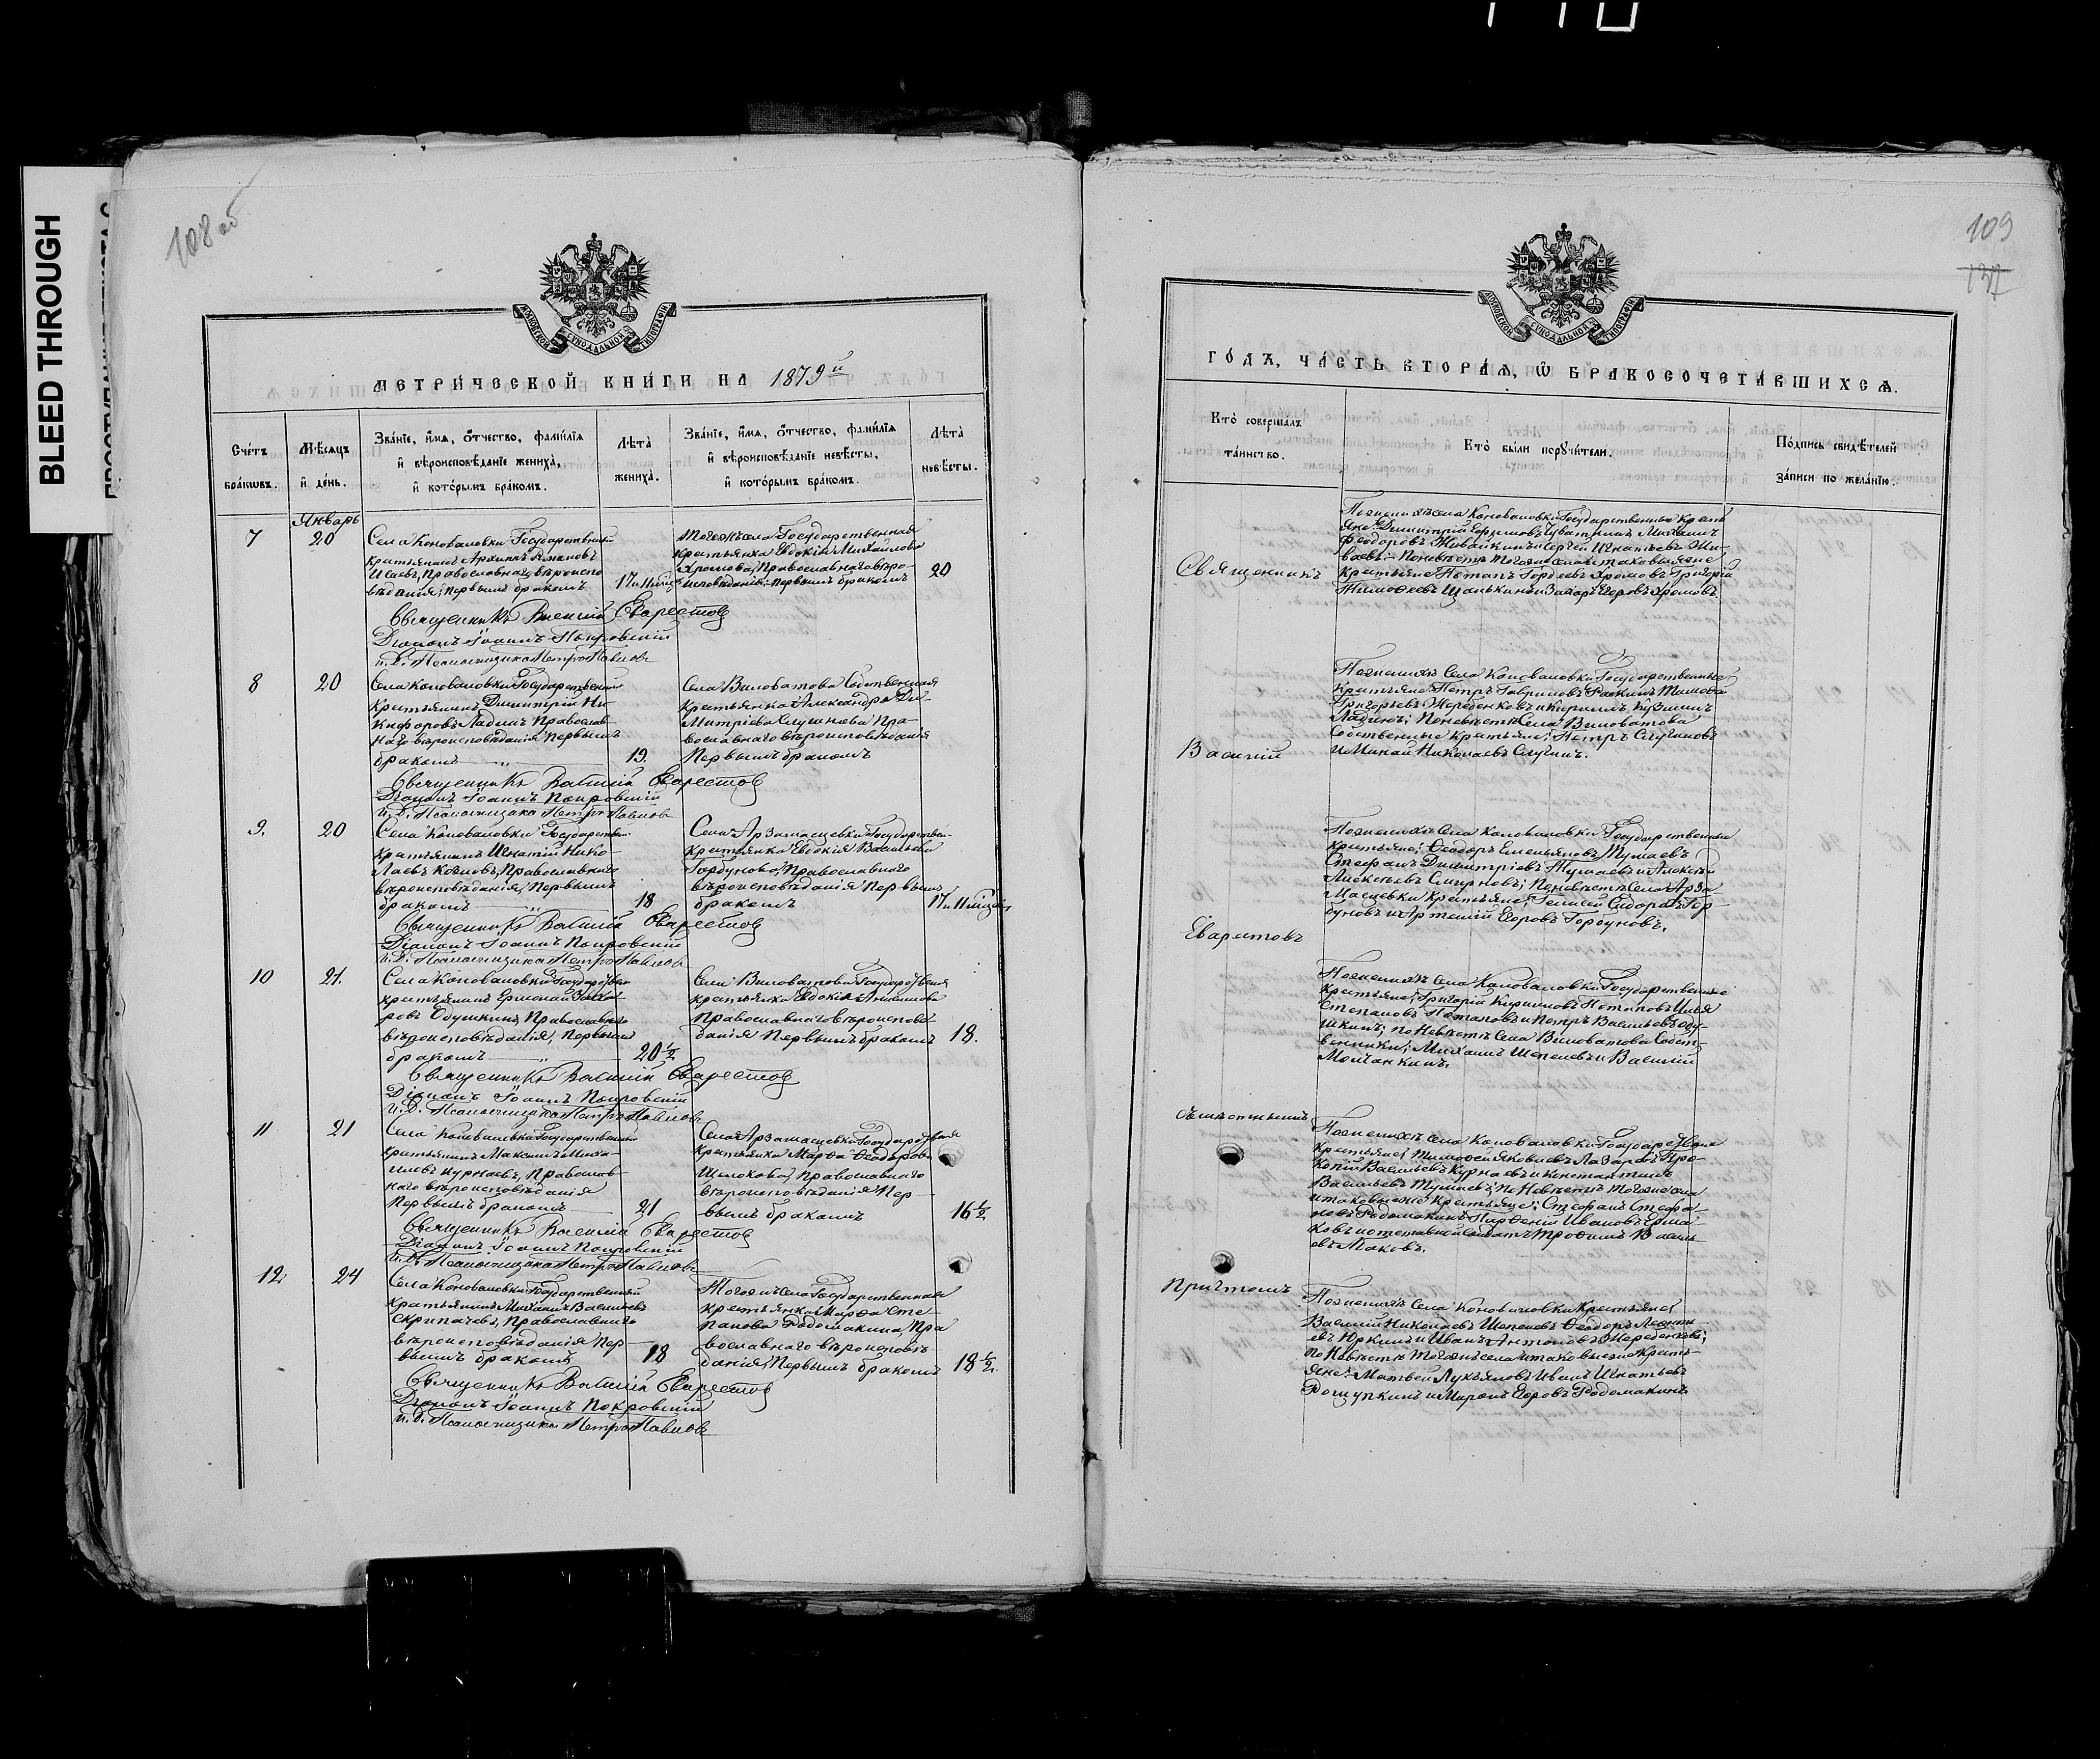 BLEED THROUGH
108 об
МОСКОВСКОЙ СѴНОДАЛЬНОЙ ТИПОГРАФІИ
МЕТРИ́ЧЕСКОЙ КНИ́ГИ НА 1879й
Сче́тъ бра́кωвъ.
Мѣ́сѧцъ и҆ де́нь.
Зва́нїе, и҆́мѧ, ѻ҆́тчество, фами́лїѧ и҆ вѣроисповѣ́данїе жениха̀, и҆ кото́рымъ бра́комъ.
Лѣ́та̀ жениха̀.
Зва́нїе, и҆́мѧ, ѻ҆́тчество, фами́лїѧ и҆ вѣроисповѣ́данїе невѣ́сты, и҆ кото́рымъ бра́комъ.
Лѣ́та̀ невѣ́сты.
Январь
7
20
Села Коноваловки Государственный
крестьянинъ Архипъ Романовъ
Исаевъ, Православнаго вѣроиспо
вѣданія, первымъ бракомъ
17 и 11 мѣс
Тогоже села Государственная
крестьянка Евдокія Михайлова
Хромова, Православнаго вѣро-
исповѣданія, первымъ бракомъ
20
Священникъ Василій Еварестов
Діаконъ Іоаннъ Покровскій
и. д. Псаломщика Петръ Павловъ
8
20
Села Коноваловки Государственный
крестьянинъ Димитрій Ни-
кифоровъ Ладинъ Православ-
наго вѣроисповѣданія первымъ
бракомъ
19.
Села Виловатова Собственная
крестьянка Александра Ди-
митріева Слугинова Пра-
вославнаго вѣроисповѣданія
Первымъ бракомъ
Священникъ Василій Еварестов
Діаконъ Іоаннъ Покровскій
и. д. Псаломщика Петръ Павловъ
9.
20
Села Коноваловки Государствен.
крестьянинъ Игнатій Нико-
лаевъ Православнаго
вѣроисповѣданія, Первымъ
бракомъ
18
Села Арзамасцевки Государствен-
крестьянка Евдокія Васильева
Горбунова, Православнаго
вѣроисповѣданія Первымъ
бракомъ
17 и 11 мѣсяц
Священникъ Василій Еварестов
Діаконъ Іоаннъ Покровскій
и. д. Псаломщика Петръ Павловъ
10
21.
Села Коноваловки Государствен
крестьянинъ Ермолай Заха
ровъ Одушкинъ, Православнаго
вѣроисповѣданія, Первымъ
бракомъ
20 ½
Села Виловатова Государственная
крестьянка Евдокія
Православнаго вѣроисповѣ
данія Первымъ бракомъ
18.
Священникъ Василій Еварестов
Діаконъ Іоаннъ Покровскій
и. д. Псаломщика Петръ Павловъ
11
21
Села Коноваловки Государственный
крестьянинъ Максимъ Михаи-
ловъ Курнаевъ, Православ-
наго вѣроисповѣданія
Первымъ бракомъ
21
Села Арзамасцевки Государственная
крестьянка Марѳа Ѳеодорова
Щелокова, Православнаго
вѣроисповѣданія Пер
вымъ бракомъ
16 ½
Священникъ Василій Еварестов
Діаконъ Іоаннъ Покровскій
и. д. Псаломщика Петръ Павловъ
12.
24
Села Коноваловки Государственный
крестьянинъ Михаилъ Васильевъ
Скрипачевъ, Православнаго
вѣроисповѣданія Пер-
вымъ бракомъ
18
Тогоже села Государственная
крестьянка Марѳа Сте-
панова Родомакина, Пра
вославнаго вѣроисповѣ
данія, Первымъ бракомъ
18 ½.
Священникъ Василій Еварестов
Діаконъ Іоаннъ Покровскій
и. д. Псаломщика Петръ Павловъ
109
МОСКОВСКОЙ СѴНОДАЛЬНОЙ ТИПОГРАФІИ
ГО́ДЪ, ЧА́СТЬ ВТОРА́Ѧ, Ѽ БРАКОСОЧЕТА́ВШИХСѦ.
Кто̀ соверша́лъ та́инство.
Кто̀ бы́ли порꙋчи́тели.
По́дпись свидѣ́телей за́писи по жела́нїю.
Священникъ
Василій
Еварестовъ
съ мѣстнымъ
Причтомъ
По женихѣ села Коноваловки Государственные кресть
яне: Димитрій Ефимовъ Цвѣткинъ Михаилъ
Ѳеодоровъ Живайкинъ и Сергѣй Игнатьевъ
По невѣстѣ тогоже села и таковые же
крестьяне Потапъ Гордеевъ Хромовъ Григорій
Тимоѳеевъ Щанькинъ и Захаръ Егоровъ Хромовъ.
По женихѣ Села Коноваловки Государственные
крестьяне: Петръ Гавриловъ Тимоѳей
Григорьевъ Жеребенковъ и Кириллъ Кузминъ
Ладинъ; По невѣстѣ Села Виловатова
Собственные крестьяне; Петръ Слугиновъ
и Минай Николаевъ
По женихѣ Села Коноваловки Государственные
крестьяне; Ѳеодоръ Емельяновъ Тумаевъ
Стефанъ Димитріевъ Тумаевъ и Алексѣй
Алексѣевъ Смирновъ; По невѣстѣ Села Арза
масцевки крестьяне; Елисей Сидоровъ Гор-
буновъ и Артемій Егоровъ Горбуновъ.
По женихѣ Села Коноваловки Государственные
крестьяне; Григорій Кирилловъ Потаповъ Илья
Степановъ Потаповъ и Петръ Васильевъ Оду-
шкинъ; по невѣстѣ Села Виловатова Собст-
венники; Михаилъ Шепелевъ и Василій
Молчанкинъ.
По женихѣ Села Коноваловки Государственные
крестьяне; Тимоѳей Яковлевъ Лазаревъ Про-
копій Васильевъ Курнаевъ и Константинъ
Васильевъ Тумаевъ; по невѣстѣ тогоже села
и таковые же крестьяне; Стефанъ Стефа
новъ Родомакинъ Парѳеній Ивановъ Ерма
ковъ и отставной солдатъ Трофимъ Василь
евъ Маковъ.
По женихѣ Села Коноваловки Крестьяне
Василій Николаевъ Шепелевъ Ѳеодоръ Леонть-
евъ Юркинъ и Иванъ Антоновъ Жеребенковъ;
по невѣстѣ тогоже села и таковые же кресть-
яне: Матвей Лукьяновъ Иванъ Игнатьевъ
Рощупкинъ и Миронъ Егоровъ Родомакинъ